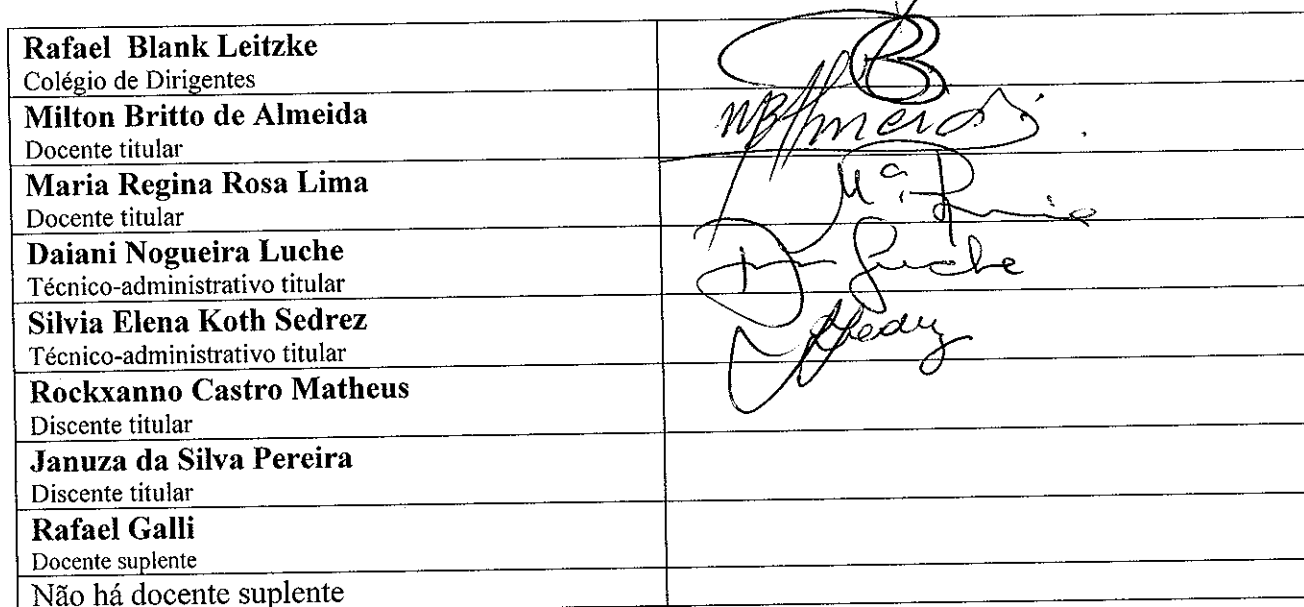 Rafael Blank Leitzke
Colégio de Dirigentes
Milton Britto de Almeida
MBAlmeida
Docente titular
Maria Regina Rosa Lima
Mª
Docente titular
Daiani Nogueira Luche
Luche
Técnico-administrativo titular
Silvia Elena Koth Sedrez
Técnico-administrativo titular
Rockxanno Castro Matheus
Discente titular
Januza da Silva Pereira
Discente titular
Rafael Galli
Docente suplente
Não há docente suplente